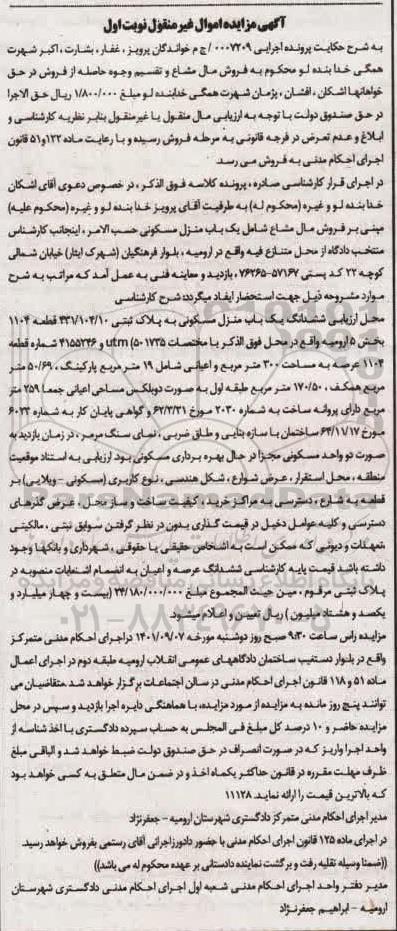 آگهی مزایده اموال غیر منقول نوبت اول
به شرح حکایت پرونده اجرایی ۰۰۰۷۲۰۹ / ج م خواندگان پرویز ، غفار ، بشارت ، اکبر شهرت
همگی خدا بنده لو محکوم به فروش مال مشاع و تقسیم وجوه حاصله از فروش در حق
خواهانها اشکان ، افشان ، پژمان شهرت همگی خدابنده لو مبلغ ۱/۸۰۰/۰۰۰ ریال حق الاجرا
در حق صندوق دولت با توجه به ارزیابی مال منقول یا غیرمنقول بنابر نظریه کارشناسی و
ابلاغ و عدم تعرض در فرجه قانونی به مرحله فروش رسیده و با رعایت ماده ۱۲۲و۵۱ قانون
اجرای احکام مدنی به فروش می رسد.
در اجرای قرار کارشناسی صادره ، پرونده کلاسه فوق الذکر ، در خصوص دعوی آقای اشکان
خدا بنده لو و غیره (محکوم له) به طرفیت آقای پرویز خدا بنده لو و غیره (محکوم علیه)
مبنی بر فروش مال مشاع شامل یک باب منزل مسکونی حسب الامر ، اینجانب کارشناس
منتخب دادگاه از محل متنازع فیه واقع در ارومیه ، بلوار فرهنگیان (شهرک ایثار) خیابان شمالی
کوچه ۲۲ کد پستی ۵۷۱۶۷-۷۶۲۶۵ ، بازدید و معاینه فنی به عمل آمد که مراتب به شرح
موارد مشروحه ذیل جهت استحضار ایفاد میگردد؛ شرح کارشناسی
محل ارزیابی ششدانگ یک باب منزل مسکونی به پلاک ثبتی ۳۳۱/۱۰۴/۱۰ قطعه ۱۱۰۴
بخش ۵ ارومیه واقع در محل فوق الذکر با مختصات utm (۵۰۱۷۳۵ و ۴۱۵۵۲۴۶ شماره قطعه
۱۱۰۴ عرصه به مساحت ۳۰۰ متر مربع و اعیانی شامل ۱۹ متر مربع پارکینگ ، ۵۰/۶۹ متر
مربع همکف ، ۱۷۰/۵۰ متر مربع طبقه اول به صورت دوبلکس مساحی اعیانی جمعا ۲۵۹ متر
مربع دارای پروانه ساخت به شماره ۲۰۳۰ مورخ ۶۲/۲/۳۱ و گواهی پایان کار به شماره ۶۰۲۳
مورخ ۶۴/۱۱/۱۷ ساختمان با سازه بنایی و طاق ضربی ، نمای سنگ مرمر ، در زمان بازدید به
صورت دو واحد مسکونی مجزا در حال بهره برداری مسکونی بود ارزیابی به استناد موقعیت
منطقه ، محل استقرار ، عرض شوارع ، شکل هندسی ، نوع کاربری (مسکونی - ویلایی) بر
قطعه به شارع ، دسترسی به مراکز خرید ، کیفیت ساخت و ساز محل ، عرض گذرهای
دسترسی و کلیه عوامل دخیل در قیمت گذاری بدون در نظر گرفتن سوابق ثبتی ، مالکیتی
،تعهدات و دیونی که ممکن است به اشخاص حقیقی یا حقوقی ، شهرداری و بانکها وجود
داشته باشد قیمت پایه کارشناسی ششدانگ عرصه و اعیان به انضمام انشعابات منصوبه در
پلاک ثبتی مرقوم ، من حیث المجموع مبلغ ۲۴/۱۸۰/۰۰۰/۰۰۰ (بیست و چهار میلیارد و
یکصد و هشتاد میلیون ) ریال تعیین و اعلام میشود.
مزایده راس ساعت ۹:۳۰ صبح روز دوشنبه مورخه ۱۴۰۱/۰۹/۰۷ دراجرای احکام مدنی متمرکز
واقع در بلوار دستغیب ساختمان دادگاههای عمومی انقلاب ارومیه طبقه دوم در اجرای اعمال
ماده ۵۱ و ۱۱۸ قانون اجرای احکام مدنی در سالن اجتماعات برگزار خواهد شد .متقاضیان می
توانند پنج روز مانده به مزایده از مورد مزایده، با هماهنگی دایره اجرا بازدید و سپس در محل
مزایده حاضر و ۱۰ درصد کل مبلغ فی المجلس به حساب سپرده دادگستری با اخذ شناسه از
واحد اجرا واریز که در صورت انصراف در حق صندوق دولت ضبط خواهد شد و الباقی مبلغ
ظرف مهلت مقرره در قانون حداکثر یکماه اخذ و در ضمن مال متعلق به کسی خواهد بود
که بالاترین قیمت را ارائه نماید. ۱۱۱۲۸
مدیر اجرای احکام مدنی متمرکز دادگستری شهرستان ارومیه - جعفرنژاد
در اجرای ماده ۱۲۵ قانون اجرای احکام مدنی با حضور دادورزاجرائی آقای رستمی بفروش خواهد رسید.
((ضمنا وسیله نقلیه رفت و برگشت نماینده دادستانی بر عهده محکوم له می باشد))
مدیر دفتر واحد اجرای احکام مدنی شعبه اول اجرای احکام مدنی دادگستری شهرستان
ارومیه - ابراهیم جعفرنژاد